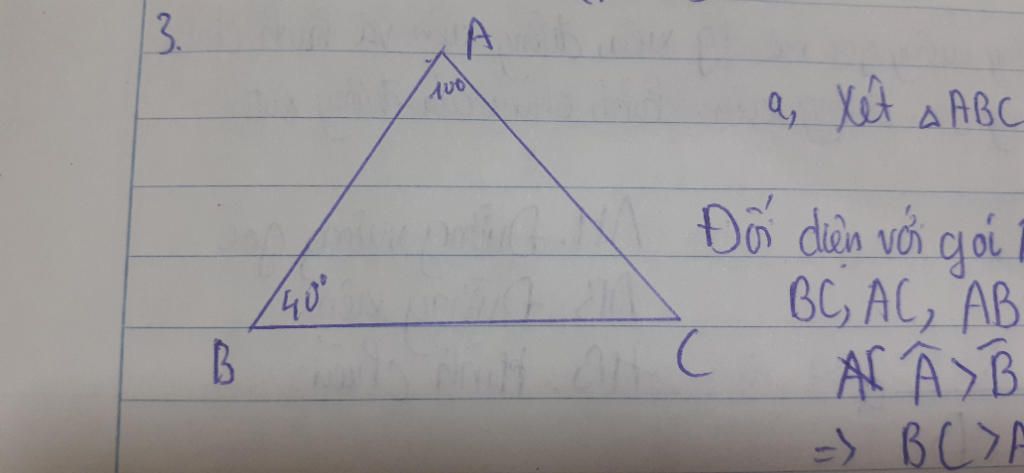 3.
A
100
40°
B
C
a, Xét △ABC
Đối diện với gói
BC, AC, AB
Â > B̂
=> BC >